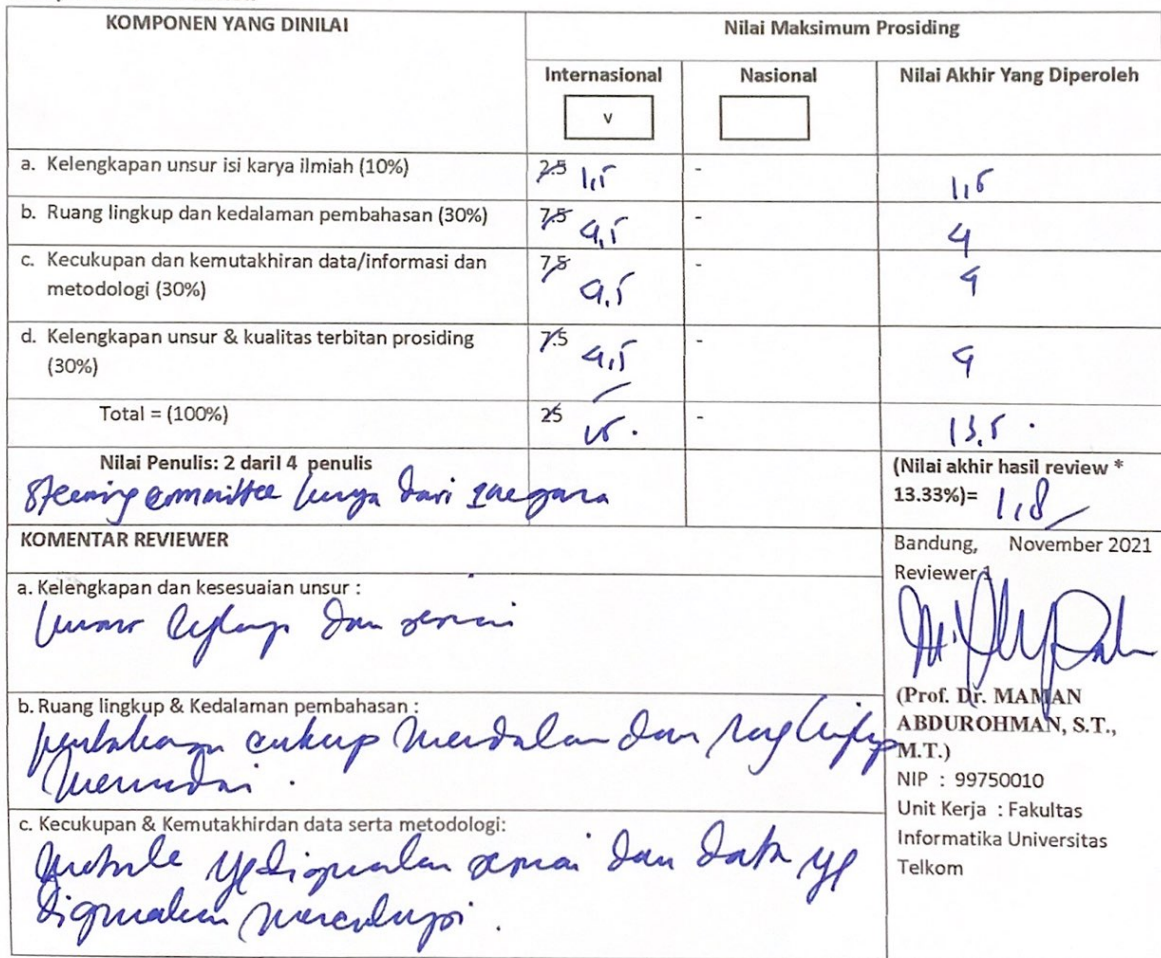 KOMPONEN YANG DINILAI
Nilai Maksimum Prosiding
Internasional Nasional Nilai Akhir Yang Diperoleh
v
a. Kelengkapan unsur isi karya ilmiah (10%) 2.5 1,5 - 1,5
b. Ruang lingkup dan kedalaman pembahasan (30%) 7,5 4,5 - 4
c. Kecukupan dan kemutakhiran data/informasi dan 7,5 4,5 - 4
metodologi (30%)
d. Kelengkapan unsur & kualitas terbitan prosiding 7.5 4,5 - 4
(30%)
Total = (100%) 25 15. - 13,5.
Nilai Penulis: 2 daril 4 penulis (Nilai akhir hasil review *
steering committee hanya dari negara 13.33%)= 1,8
KOMENTAR REVIEWER
Bandung, November 2021
Reviewer 1
a. Kelengkapan dan kesesuaian unsur :
unsur lengkap dan sesuai
b. Ruang lingkup & Kedalaman pembahasan :
pembahasan cukup mendalam dan lingkup
memadai.
c. Kecukupan & Kemutakhirdan data serta metodologi:
metode yg digunakan sesuai dan data yg
digunakan mencukupi.
(Prof. Dr. MAMAN
ABDUROHMAN, S.T.,
M.T.)
NIP : 99750010
Unit Kerja : Fakultas
Informatika Universitas
Telkom